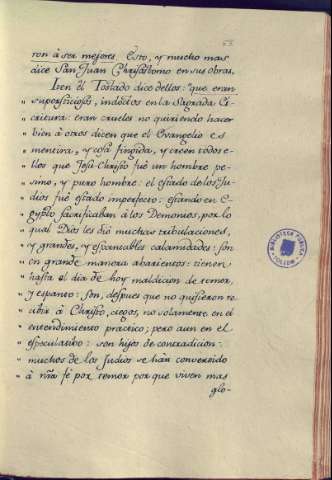 ron à ser mejores. Esto, y mucho mas
dice San Juan Chrisostomo en sus obras.
Iten el Tostado dice dellos: "que eran
" supersticiosos, indoctos en la Sagrada Es-
" critura: eran crueles no quiriendo hacer
" bien à otros dicen que el Evangelio es
" mentira, y cosa fingida, y creen todos e-
" llos que Jesu-Christo fuè un hombre pe-
" simo, y puro hombre: el estado de los Ju-
" dios fuè estado imperfecto: estando en E-
" gypto sacrificaban à los Demonios, por lo
" qual Dios les diò muchas tribulaciones,
" y grandes, y espantables calamidades: son
" en grande manera abarientos: tienen
" hasta el dia de hoy maldicion de temor,
" y espanto: son, despues que no quisieron re
" cibir à Christo, ciegos, no solamente en el
" entendimiento practico; pero aun en el
" especulatibo: son hijos de contradicion:
" muchos de los Judios se hàn convertido
" à nrã fè por temor por que viven mas
glo-
BIBLIOTECA PUBLICA
TOLEDO